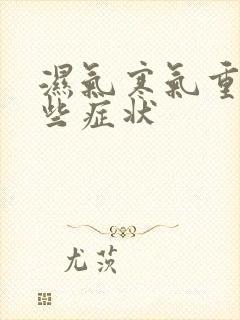 濕氣寒氣重
些症状
尤茨